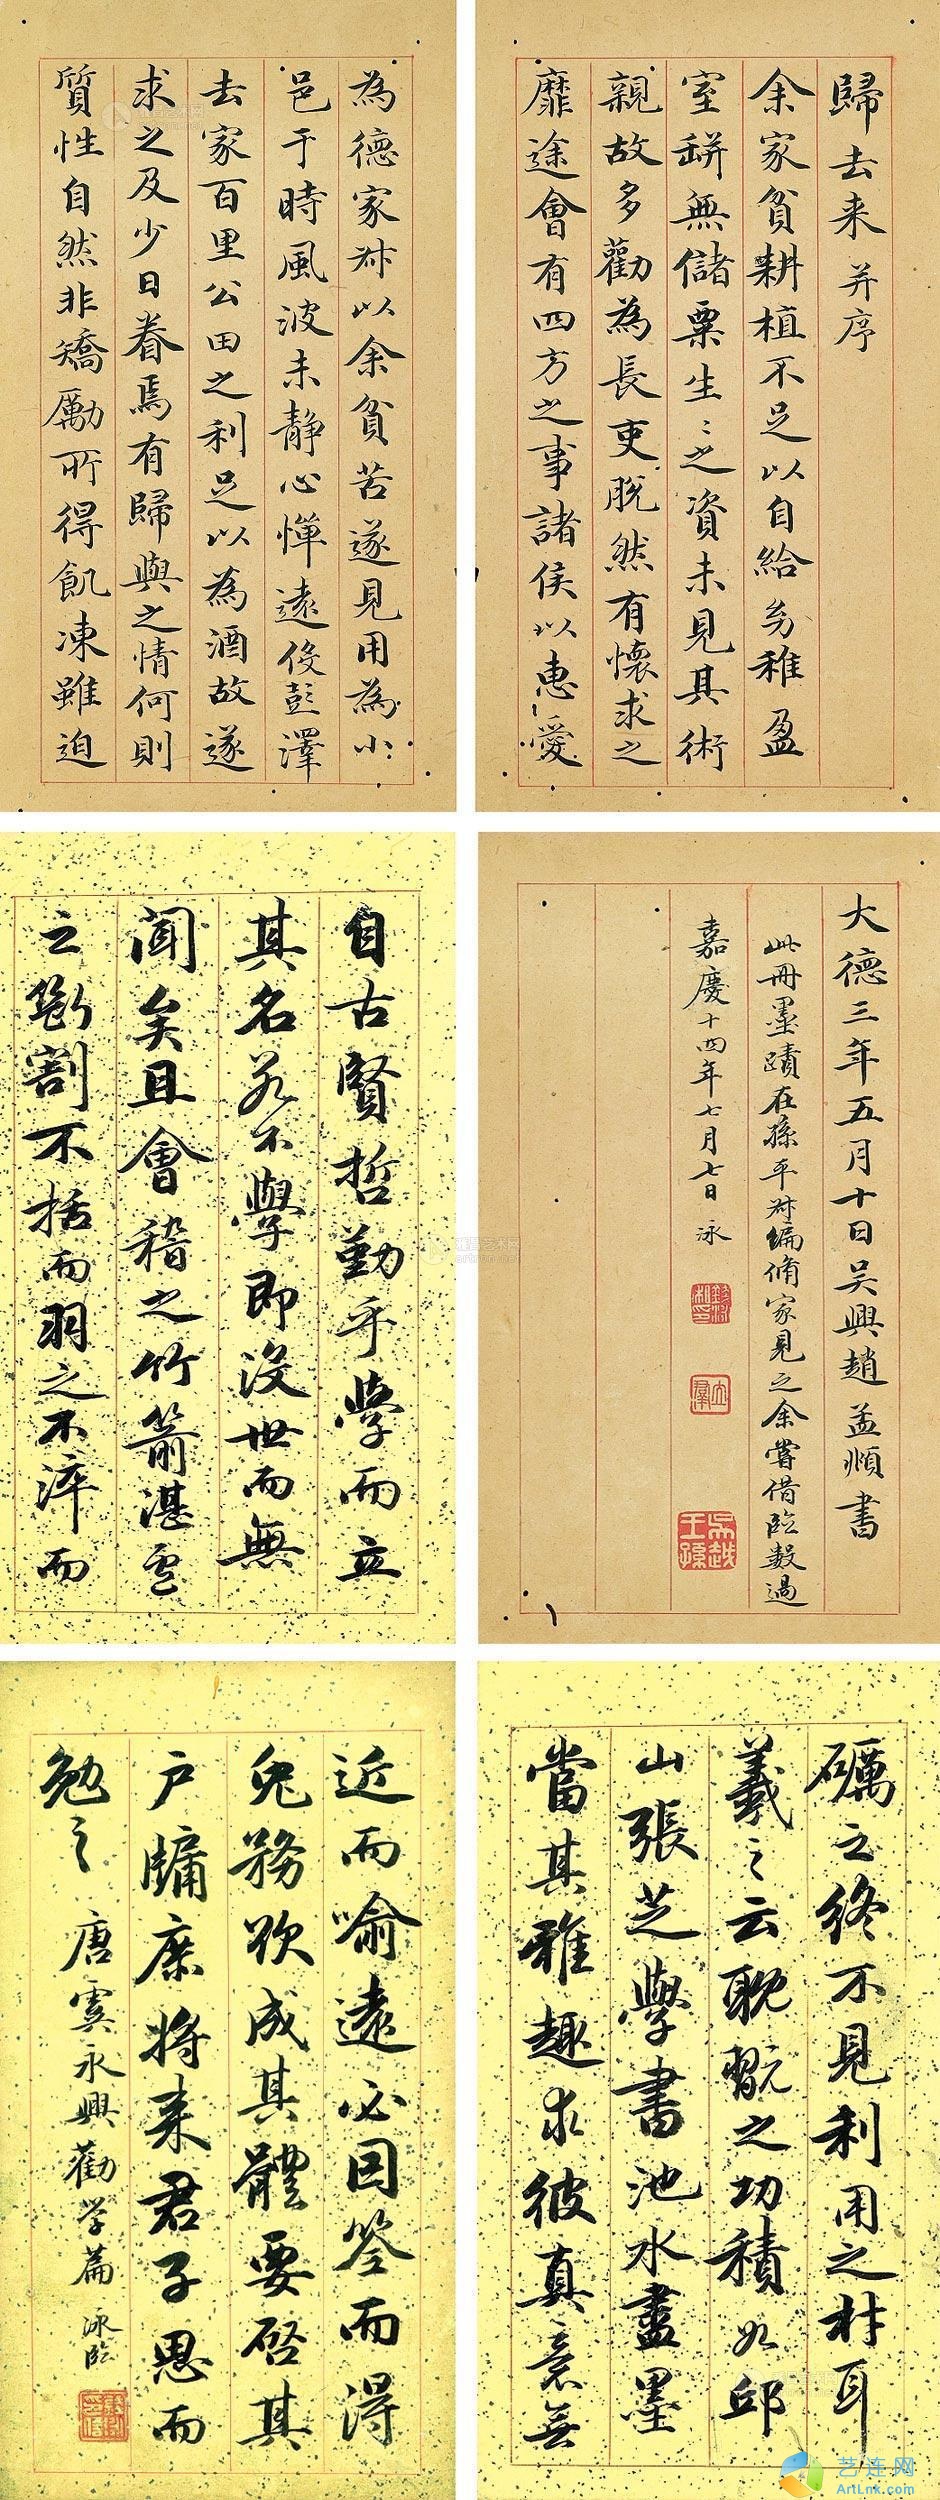 歸去来并序
余家貧耕植不足以自給幼稚盈
室缾無儲粟生〻之資未見其術
親故多勸為長吏脫然有懷求之
靡途會有四方之事諸侯以惠愛
為德家叔以余貧苦遂見用為小
邑于時風波未靜心憚遠役彭澤
去家百里公田之利足以為酒故遂
求之及少日眷焉有歸與之情何則
質性自然非矯勵所得飢凍雖迫
大德三年五月十日吳興趙孟頫書
此冊墨蹟在孫平叔編脩家見之余嘗借臨數過
嘉慶十四年七月七日泳
吳越王孫
自古賢哲勤乎學而立
其名若不學即没世而無
聞矣且會稽之竹箭湛盧
之斷割不括而羽之不淬而
礪之終不見利用之材耳
羲之云耽翫之功積如邱
山張芝學書池水盡墨
當其雅趣求彼真意無
近而喻遠必因筌而得
兔務欲成其體要啓其
户牖庶將来君子思而
勉之唐虞永興勸学篇泳臨
艺连网
ArtLnk.com